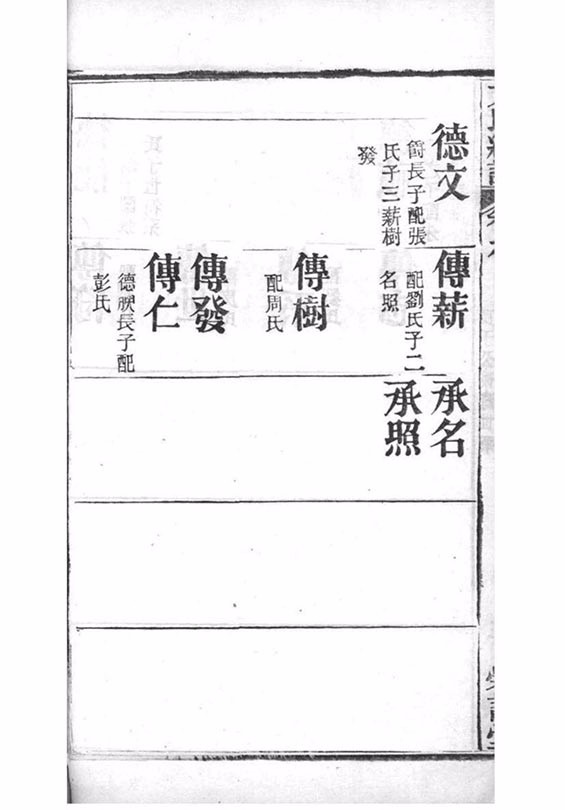 德文
篰長子配張
氏子三薪樹
發
傳薪
配劉氏子二
名照
傳樹
配周氏
傳發
傳仁
德朕長子配
彭氏
承名
承照